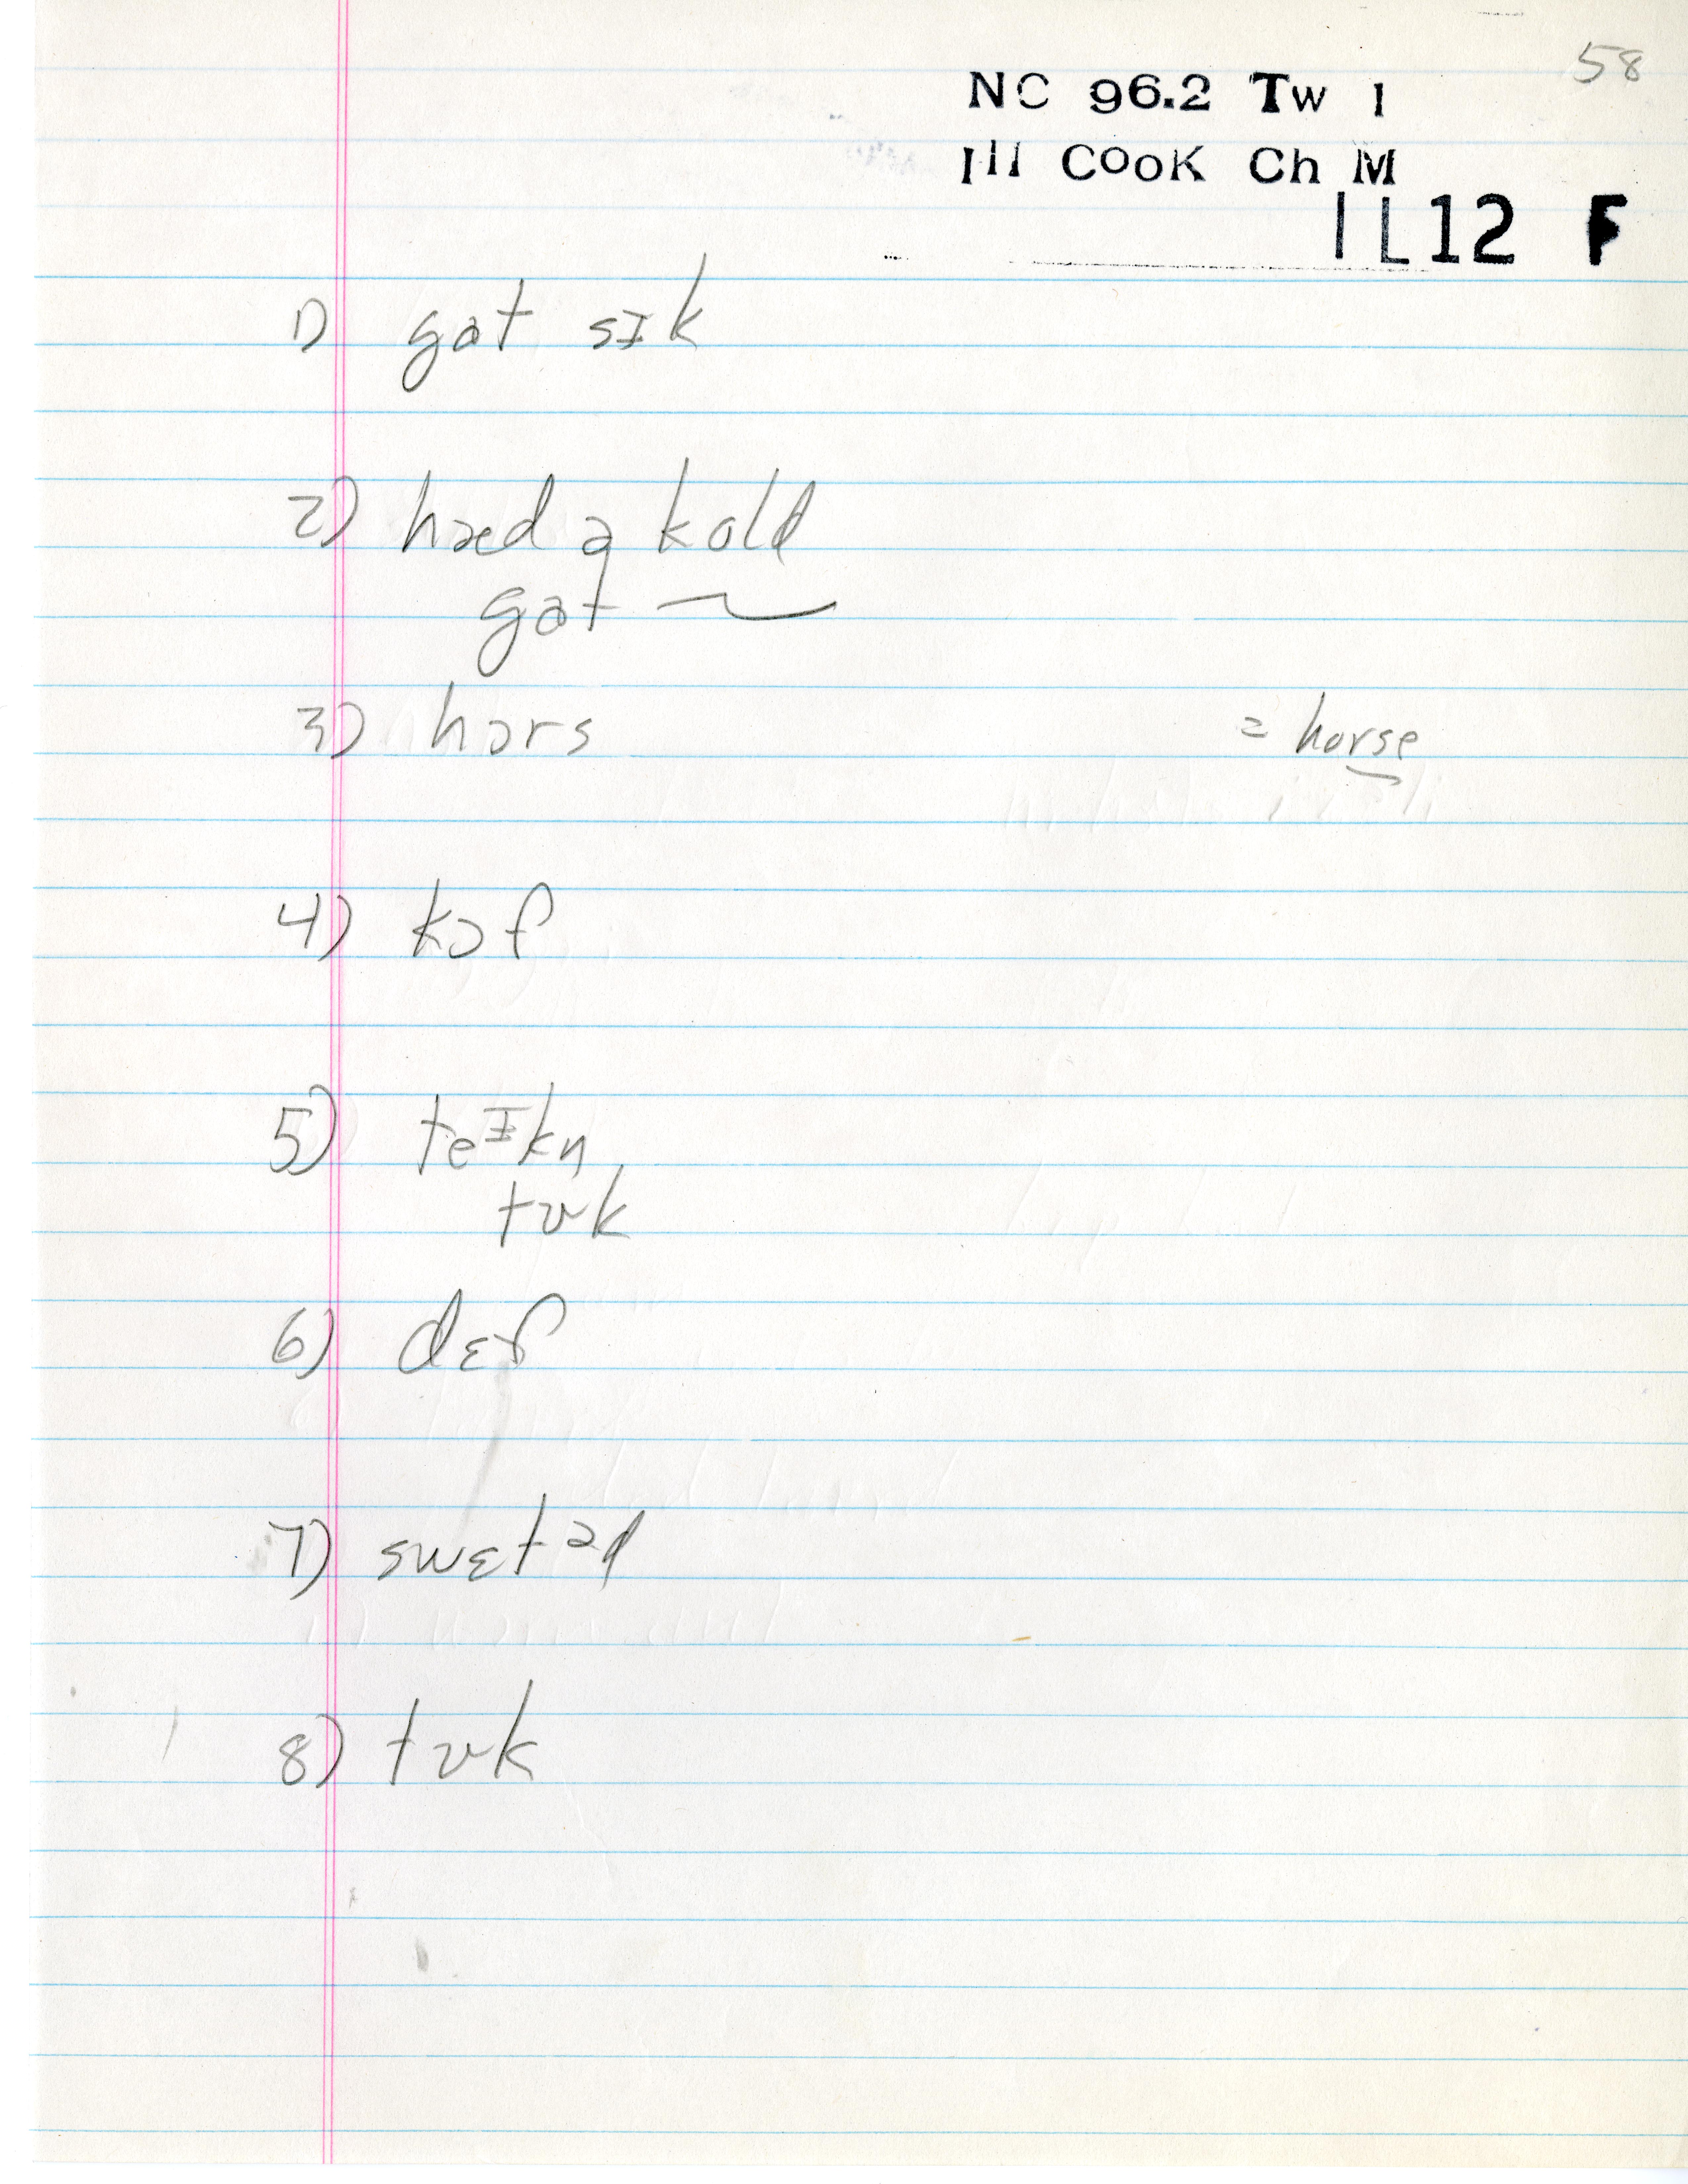 58
NC 96.2 Tw 1
Ill Cook Ch M
IL12 F
1) gɑt sɪk
2) hæd ə kold
gɑt ~
3) hɔrs = horse
4) kɔf
5) teᶦkn
tʊk
6) dɛf
7) swɛtəd
8) tʊk